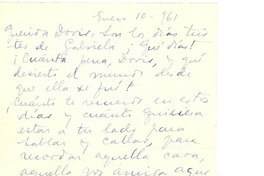 Enero 10-961
Querida Doris: Son los días tris
tes de Gabriela ¡Qué días!
¡Cuánta pena, Doris, y qué
desierto el mundo desde
que ella se fué!
¡Cuánto te recuerdo en estos
días y cuánto quisiera
estar a tu lado para
hablar y callar, para
recordar aquella cara,
aquella voz amiga aquel